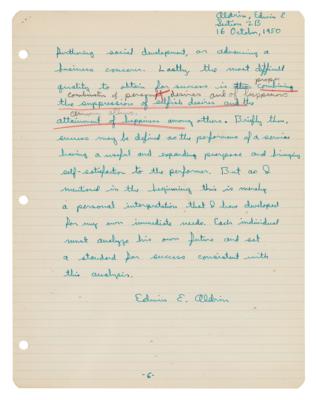 Aldrin, Edwin E
Section 2B
16 October, 1950
furthering social development, or advancing a
business concern. Lastly the most difficult
proper
quality to obtain for success is the combining
combination of personal desires and of happiness
the suppression of selfish desires and the
among others.
attainment of happiness among others. Briefly then,
success may be defined as the performance of a service
having a useful and expanding purpose and bringing
self-satisfaction to the performer. But as I
mentioned in the beginning this is merely
a personal interpretation that I have developed
for my own immediate needs. Each individual
must analyze his own future and set
a standard for success consistent with
this analysis.
Edwin E. Aldrin
-6-